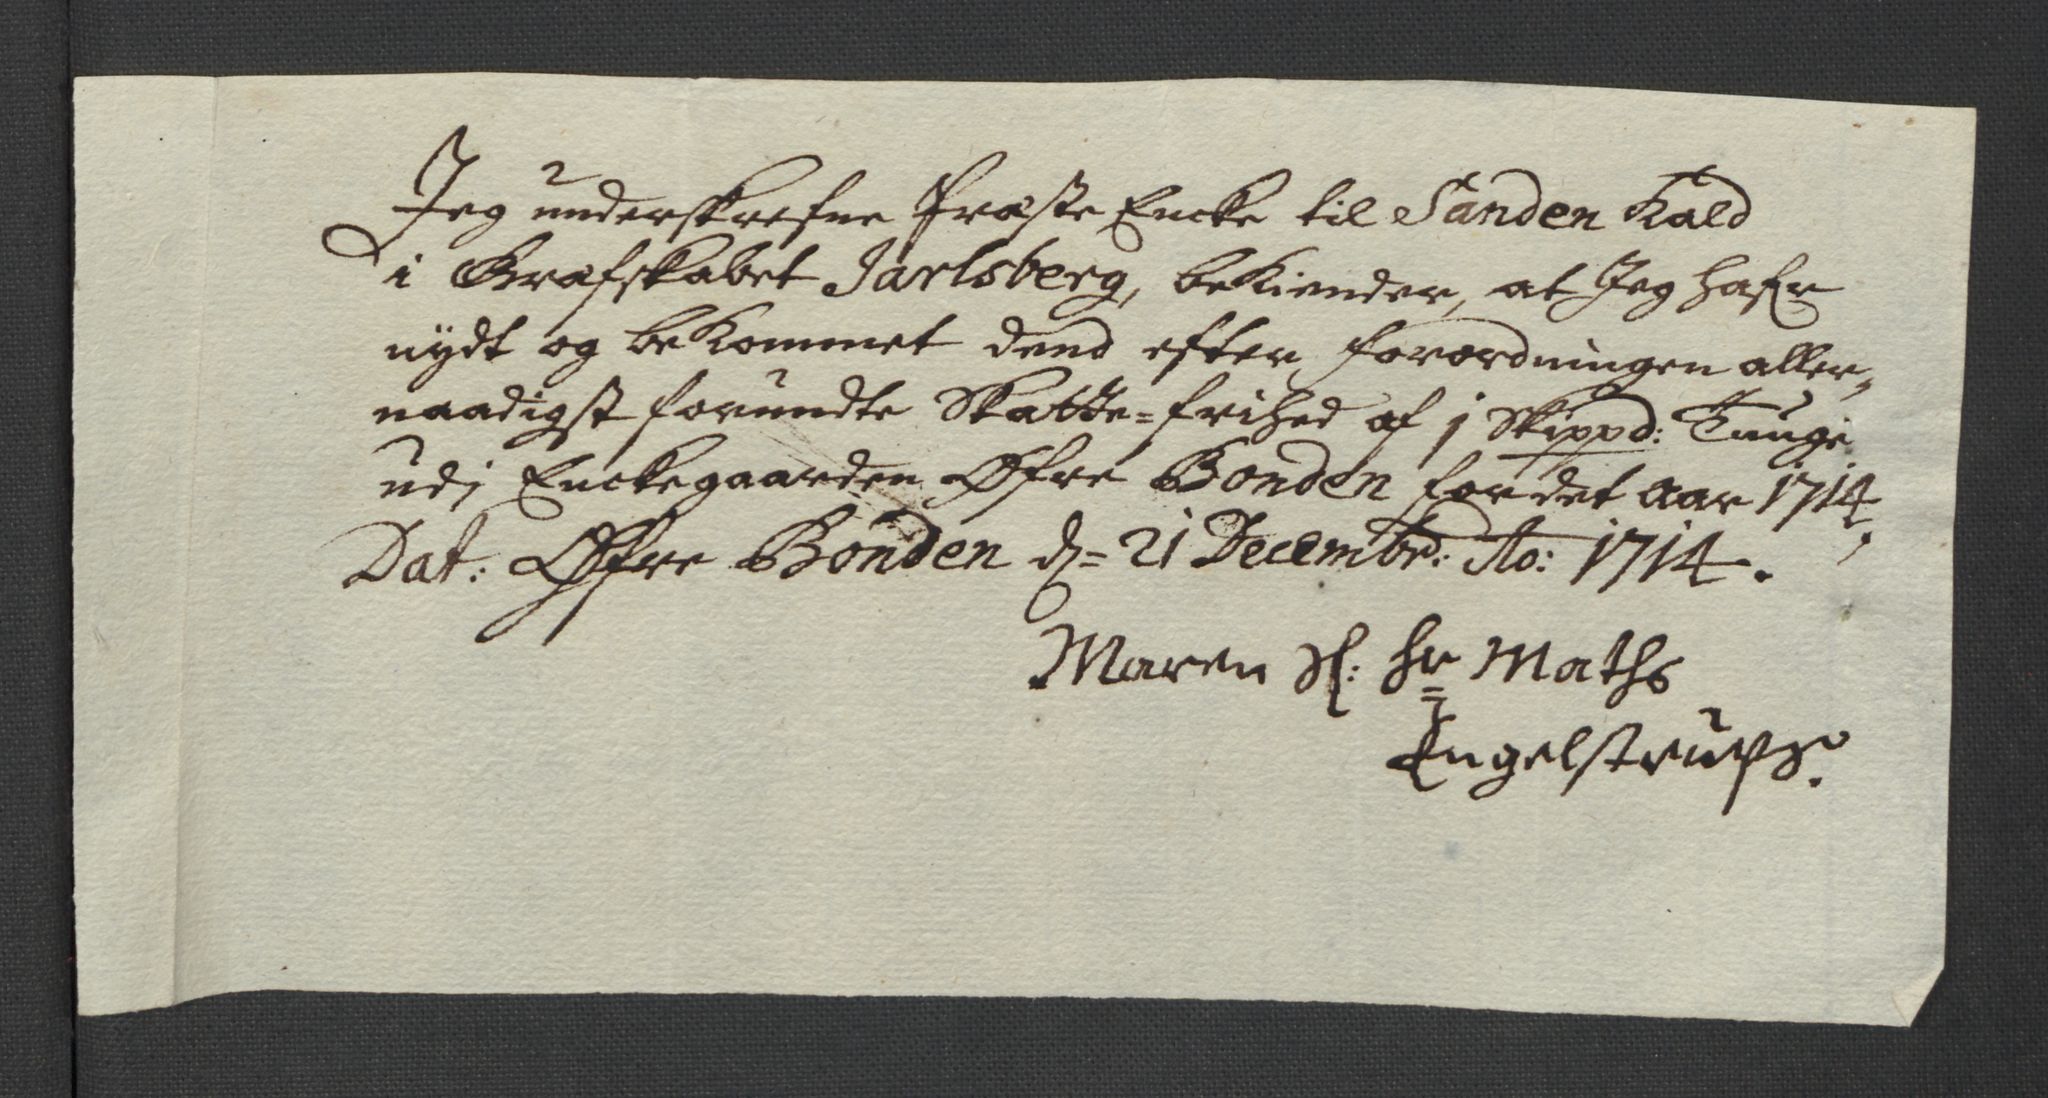 Jeg underskrefne Præste Encke til Sanden Kald
i Grafskabet Jarlsberg, bekiender, at Jeg hafr
nydt og bekommet dend efter forordningen aller„
naadigst forundte Skatte=frihed af 1 Skippd: Tunge
udj Enckegaarden Øfre Bonden for det aar 1714,
Dat: Øfre Bonden d= 21 Decembr: Ao: 1714.
Maren Sl: Hr Maths
Engelstrups.